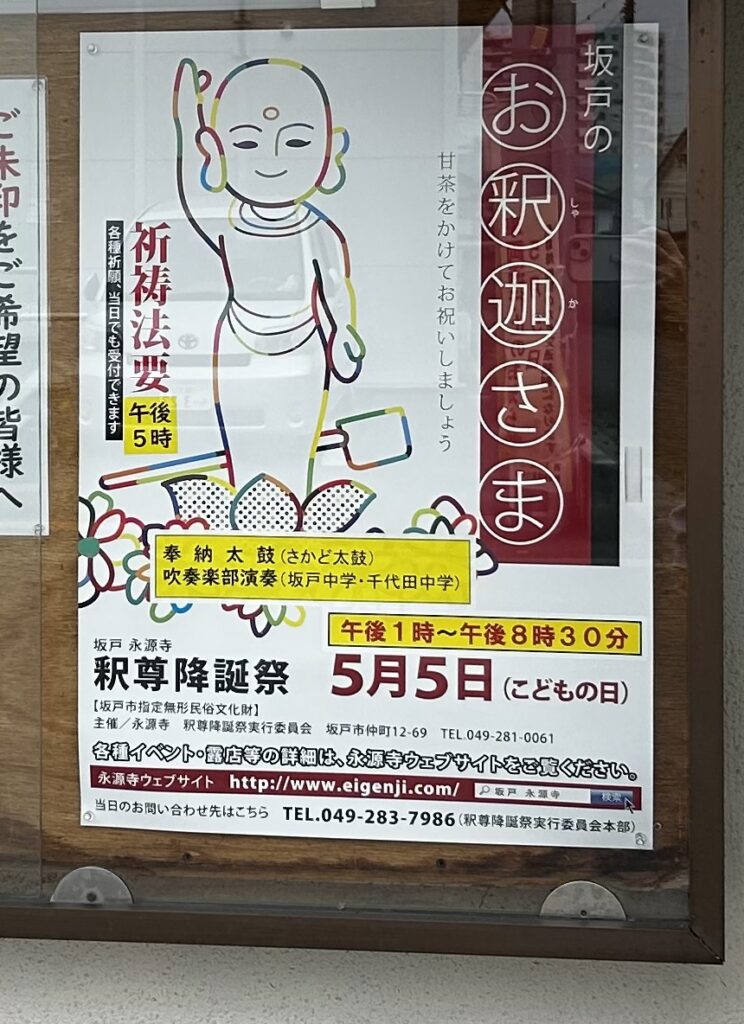 坂戸の
お釈迦さま
しゃ
か
甘茶をかけてお祝いしましょう
祈祷法要
午後
5時
各種祈願、当日でも受付できます
奉納太鼓（さかど太鼓）
吹奏楽部演奏（坂戸中学・千代田中学）
午後1時～午後8時30分
坂戸 永源寺
釈尊降誕祭
5月5日（こどもの日）
【坂戸市指定無形民俗文化財】
主催／永源寺 釈尊降誕祭実行委員会 坂戸市仲町12-69 TEL.049-281-0061
各種イベント・露店等の詳細は、永源寺ウェブサイトをご覧ください。
永源寺ウェブサイト http://www.eigenji.com/
坂戸 永源寺
検索
当日のお問い合わせ先はこちら TEL.049-283-7986（釈尊降誕祭実行委員会本部）
ご朱印をご希望の皆様へ